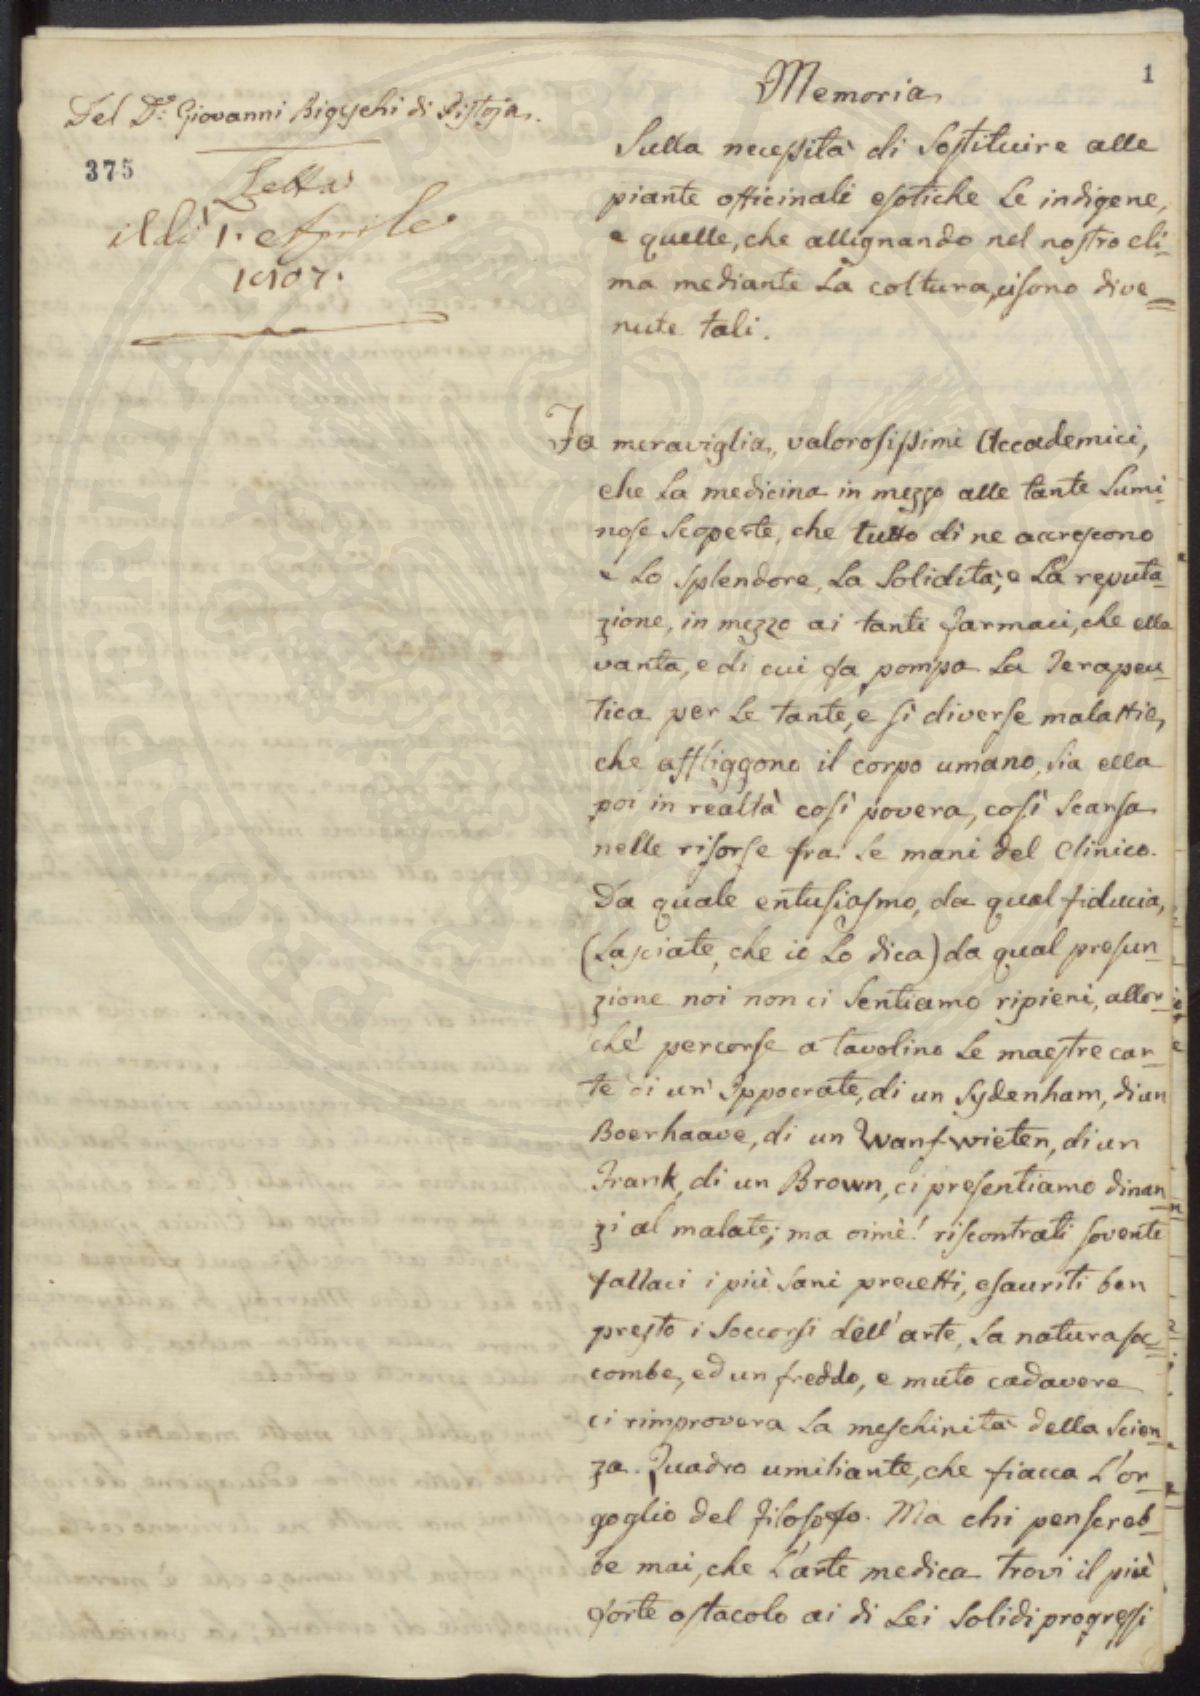 1
Del D.r Giovanni Bigeschi di Pistoja.
375
Letta
il dì 1. Aprile
1807.
Memoria
Sulla necessità di Sostituire alle
piante officinali esotiche le indigene,
e quelle, che allignando nel nostro cli-
ma mediante la coltura, ci sono dive=
nute tali.
Fa meraviglia, valorosissimi Accademici,
che la medicina in mezzo alle tante lumi-
nose scoperte, che tutto dì ne accrescono
e lo splendore, la solidità, e la reputa-
zione, in mezzo ai tanti farmaci, che ella
vanta, e di cui fa pompa la Terapeu-
tica per le tante, e sì diverse malattie,
che affliggono il corpo umano, sia ella
poi in realtà così povera, così scarsa
nelle risorse fra le mani del Clinico.
Da quale entusiasmo, da qual fiducia,
(lasciate, che io lo dica) da qual presun-
zione noi non ci sentiamo ripieni, allor-
chè percorse a tavolino le maestre car-
te di un Ippocrate, di un Sydenham, di un
Boerhaave, di un Wanswieten, di un
Frank, di un Brown, ci presentiamo dinan-
zi al malato; ma oimè! riscontrati sovente
fallaci i più sani precetti, esauriti ben
presto i soccorsi dell'arte, la natura soc=
combe, ed un freddo, e muto cadavere
ci rimprovera la meschinità della scien-
za. Quadro umiliante, che fiacca l'or-
goglio del filosofo. Ma chi pensereb-
be mai, che l'arte medica trovi il più
forte ostacolo ai di lei solidi progressi